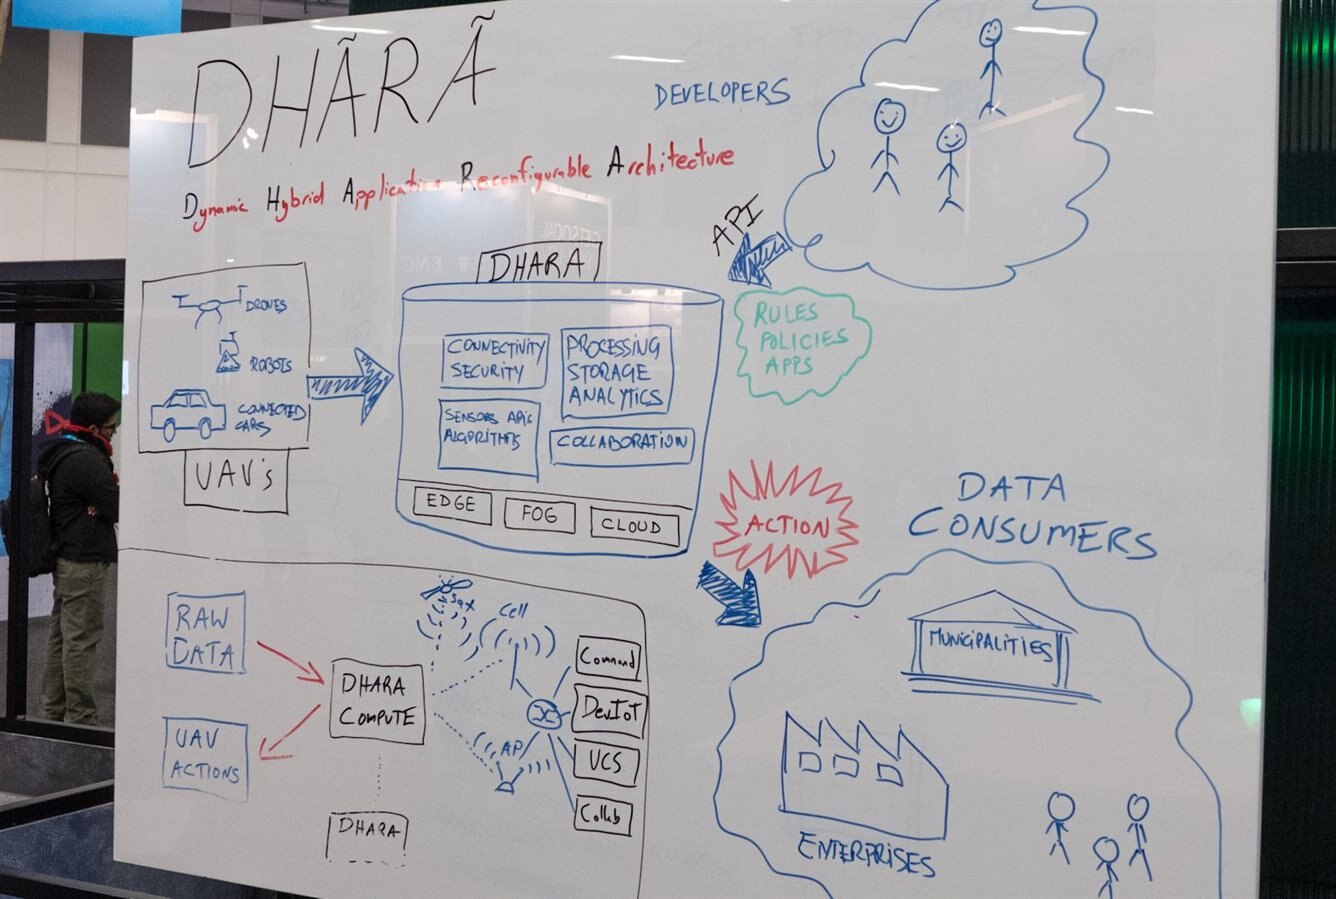 DHÃRÃ
Dynamic Hybrid Application Reconfigurable Architecture
DEVELOPERS
API
RULES
POLICIES
APPS
DRONES
ROBOTS
CONNECTED
CARS
UAV's
DHARA
CONNECTIVITY
SECURITY
PROCESSING
STORAGE
ANALYTICS
SENSORS API's
ALGORITHMS
COLLABORATION
EDGE
FOG
CLOUD
ACTION
DATA
CONSUMERS
MUNICIPALITIES
ENTERPRISES
RAW
DATA
UAV
ACTIONS
DHARA
COMPUTE
DHARA
Sat
Cell
AP
Command
DevIoT
UCS
Collab